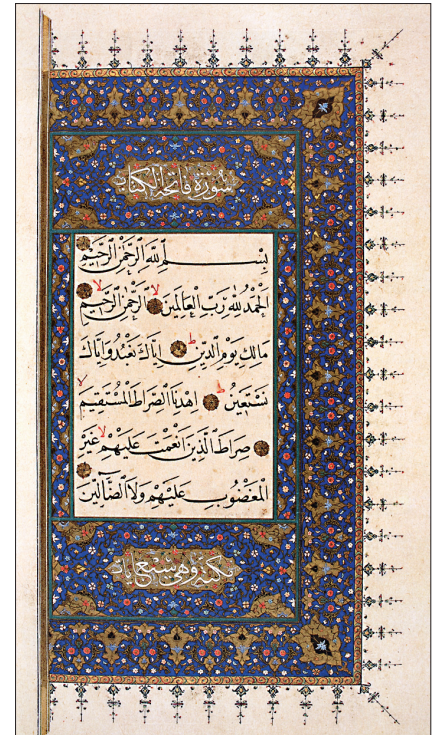 سُورَةُ فَاتِحَةِ الْكِتَابِ
بِسْمِ اللَّهِ الرَّحْمَنِ الرَّحِيمِ
الْحَمْدُ لِلَّهِ رَبِّ الْعَالَمِينَ لا الرَّحْمَنِ الرَّحِيمِ لا
مَالِكِ يَوْمِ الدِّينِ ط اِيَّاكَ نَعْبُدُ وَاِيَّاكَ
نَسْتَعِينُ ط اِهْدِنَا الصِّرَاطَ الْمُسْتَقِيمَ لا
صِرَاطَ الَّذِينَ اَنْعَمْتَ عَلَيْهِمْ لا غَيْرِ
الْمَغْضُوبِ عَلَيْهِمْ وَلَا الضَّالِّينَ
مكية وهي سبع ايات